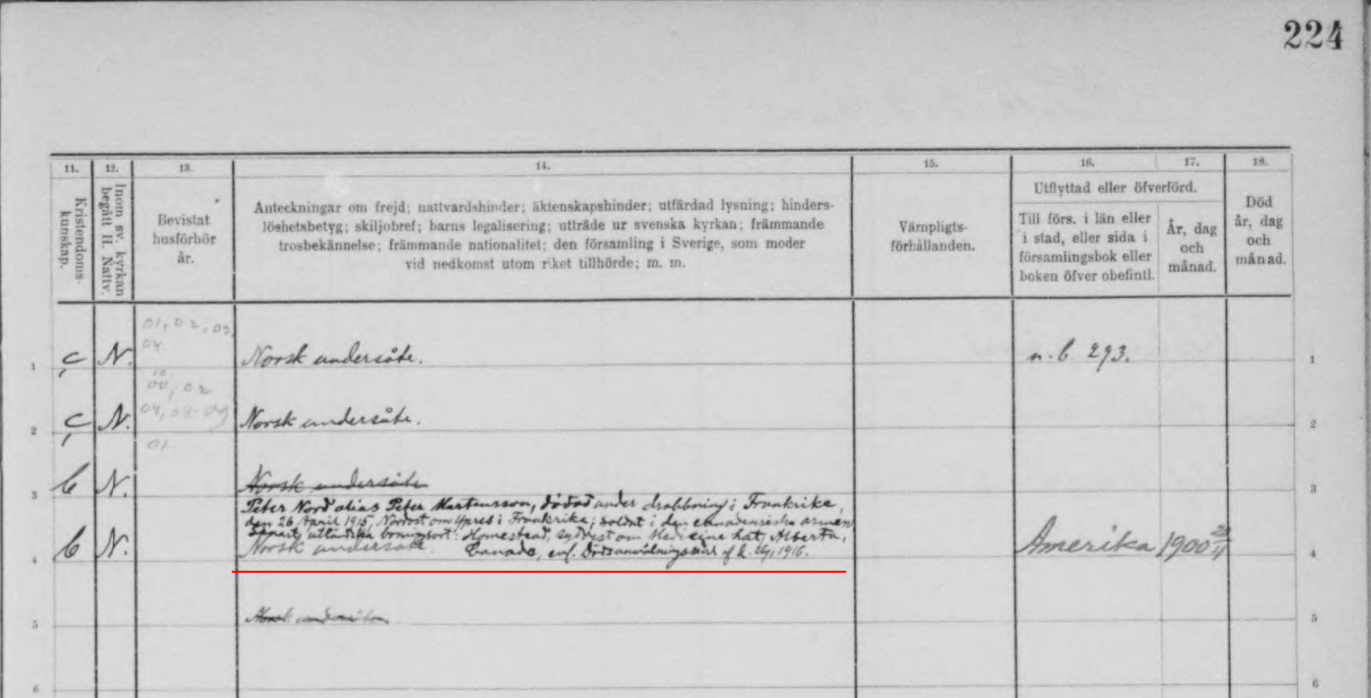 224
11. 12. 13. 14. 15. 16. 17. 18.
Kristendoms-
kunskap.
Inom sv. kyrkan
begått H. Nattv.
Bevistat
husförhör
år.
Anteckningar om frejd; nattvardshinder; äktenskapshinder; utfärdad lysning; hinders-
löshetsbetyg; skiljobref; barns legalisering; utträde ur svenska kyrkan; främmande
trosbekännelse; främmande nationalitet; den församling i Sverige, som moder
vid nedkomst utom riket tillhörde; m. m.
Värnpligts-
förhållanden.
Utflyttad eller öfverförd.
Till förs. i län eller
i stad, eller sida i
församlingsbok eller
boken öfver obefintl.
År, dag
och
månad.
Död
år, dag
och
månad.
01, 02, 03,
04
1 c N. Norsk undersåte. n. b. 293. 1
00, 02
04, 08-09
2 c N. Norsk undersåte. 2
01
3 b N. Norsk undersåte 3
Peter Nord alias Peter Martensson, dödad under drabbning i Frankrike,
den 26 April 1915, Nordost om Ypres i Frankrike; soldat i den canadensiska armen
utländska boningsort: Homestead, sydvest om Medicine hat, Alberta,
4 b N. Norsk undersåte Canada, enl. 1916. Amerika 1900 4
5 Norsk undersåte 5
6 6